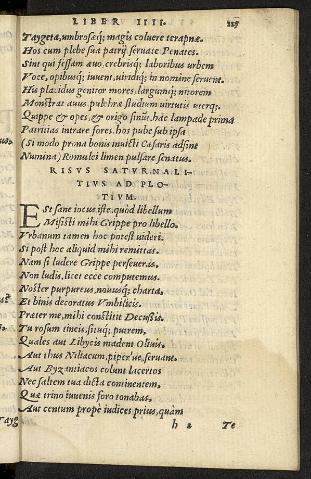 LIBER IIII.
Taygeta, umbrosæq; magis coluere terapnæ.
Hos cum plebe sua patrij seruate Penates.
Sint qui fessam auo, crebrisq; laboribus urbem
Voce, opibusq; iuuent, uiridiq; in nomine seruent.
His placidus genitor mores, largumq; nitorem
Monstrat auus, pulchræ studium uirtutis uterq;.
Quippe & opes, & origo sinūt, hac lampade prima
Patritias intrare fores, hos pube sub ipsa
(Si modo prona bonis inuicti Cæsaris adsint
Numina) Romulei limen pulsare senatus.
RISVS SATVRNALI-
TIVS AD PLO-
TIVM.
Est sane iocus iste, quòd libellum
Misisti mihi Grippe pro libello.
Vrbanum tamen hoc potest uideri,
Si post hoc aliquid mihi remittas.
Nam si ludere Grippe perseueras,
Non ludis, licet ecce computemus.
Noster purpureus, nouusq; charta,
Et binis decoratus Vmbilicis,
Præter me, mihi constitit Decussis.
Tu rosum tineis, situq; putrem,
Quales aut Libycis madent Oliuis,
Aut thus Niliacum, piper'ue, seruant,
Aut Byzantiacos colunt lacertos
Nec saltem tua dicta continentem,
Quæ trino iuuenis foro tonabas,
Aut centum propè iudices prius, quàm
h 2
Te